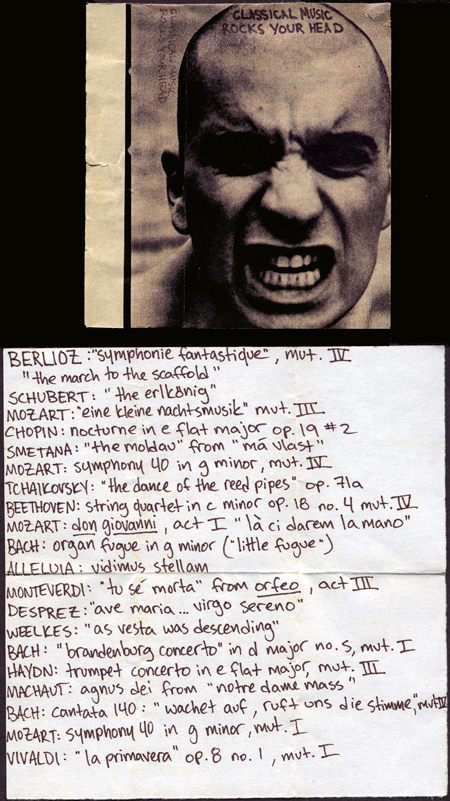 CLASSICAL MUSIC
ROCKS YOUR HEAD
CLASSICAL MUSIC
ROCKS YOUR HEAD
BERLIOZ: "symphonie fantastique", mut. IV
"the march to the scaffold"
SCHUBERT: "the erlkönig"
MOZART: "eine kleine nachtsmusik" mut. III
CHOPIN: nocturne in e flat major op. 19 #2
SMETANA: "the moldau" from "má vlast"
MOZART: symphony 40 in g minor, mut. IV
TCHAIKOVSKY: "the dance of the reed pipes" op. 71a
BEETHOVEN: string quartet in c minor op. 18 no. 4 mut. IV
MOZART: don giovanni, act I "là ci darem la mano"
BACH: organ fugue in g minor ("little fugue")
ALLELUIA: vidimus stellam
MONTEVERDI: "tu sé morta" from orfeo, act III
DESPREZ: "ave maria... virgo sereno"
WEELKES: "as vesta was descending"
BACH: "brandenburg concerto" in d major no. 5, mut. I
HAYDN: trumpet concerto in e flat major, mut. III
MACHAUT: agnus dei from "notre dame mass"
BACH: cantata 140: "wachet auf, ruft uns die stimme," mut IV
MOZART: symphony 40 in g minor, mut. I
VIVALDI: "la primavera" op. 8 no. 1, mut. I